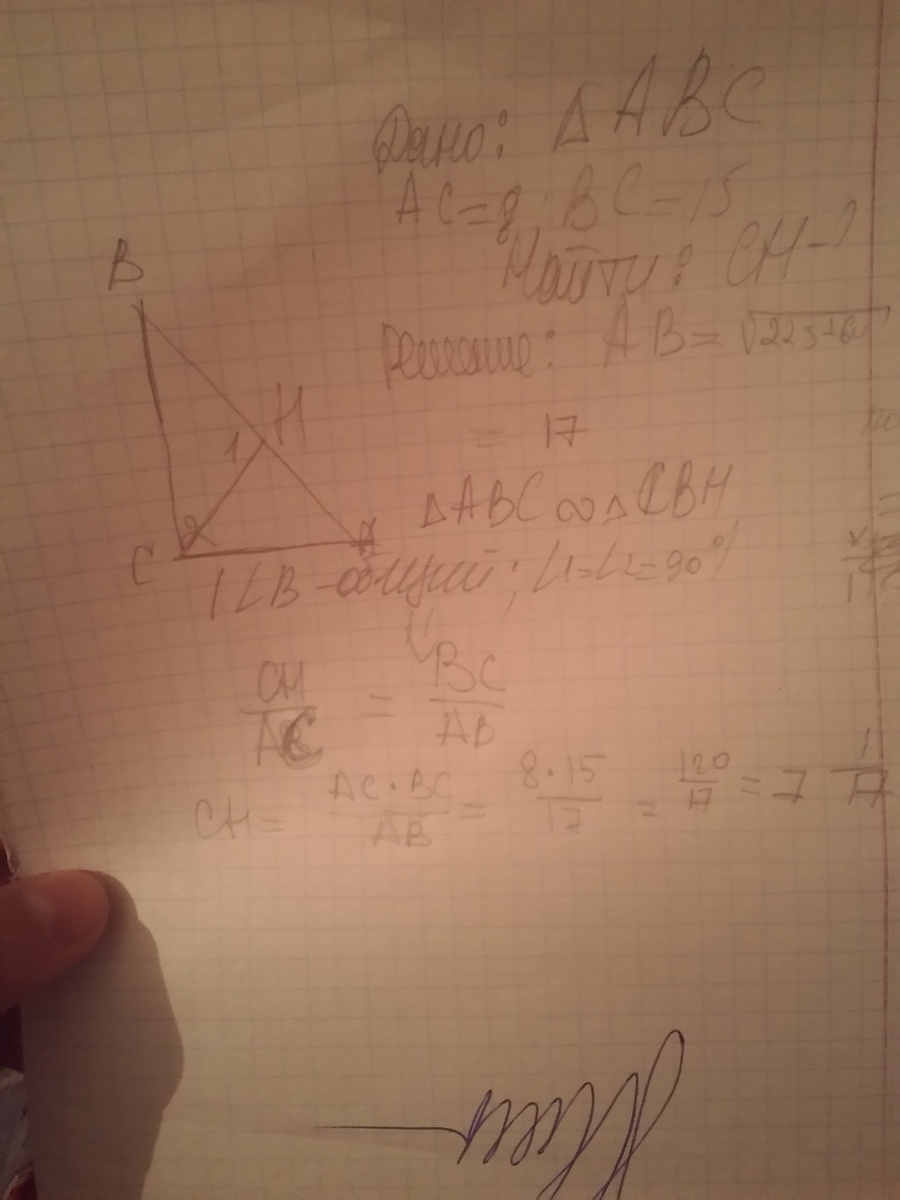 Дано: ΔABC
AC=8; BC=15
Найти: CH-?
Решение: AB=√225+64
= 17
ΔABC ∞ Δ CBH
B
H
1
2
C
A
∠B-общий; ∠1=∠2=90°
CH/AC = BC/AB
CH= AC·BC/AB = 8·15/17 = 120/17 = 7 1/17